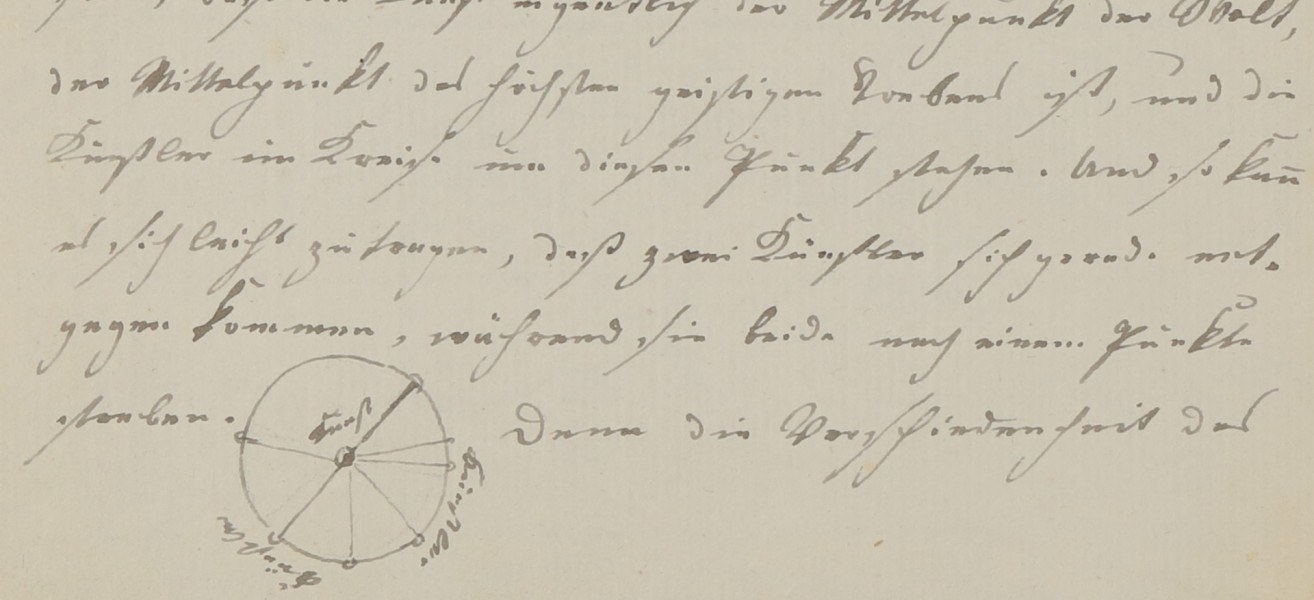 eigentlich der Mittelpunkt der Welt,
der Mittelpunkt des höchsten geistigen Strebens ist, und die
Künstler im Kreise um diesen Punkt stehen. Und so kan̄
es sich leicht zutragen, daß zwei Künstler sich gerade ent-
gegen kommen, während sie beide nach einem Punkte
streben. Denn die Verschiedenheit des
Kunst
Künstler
Künstler